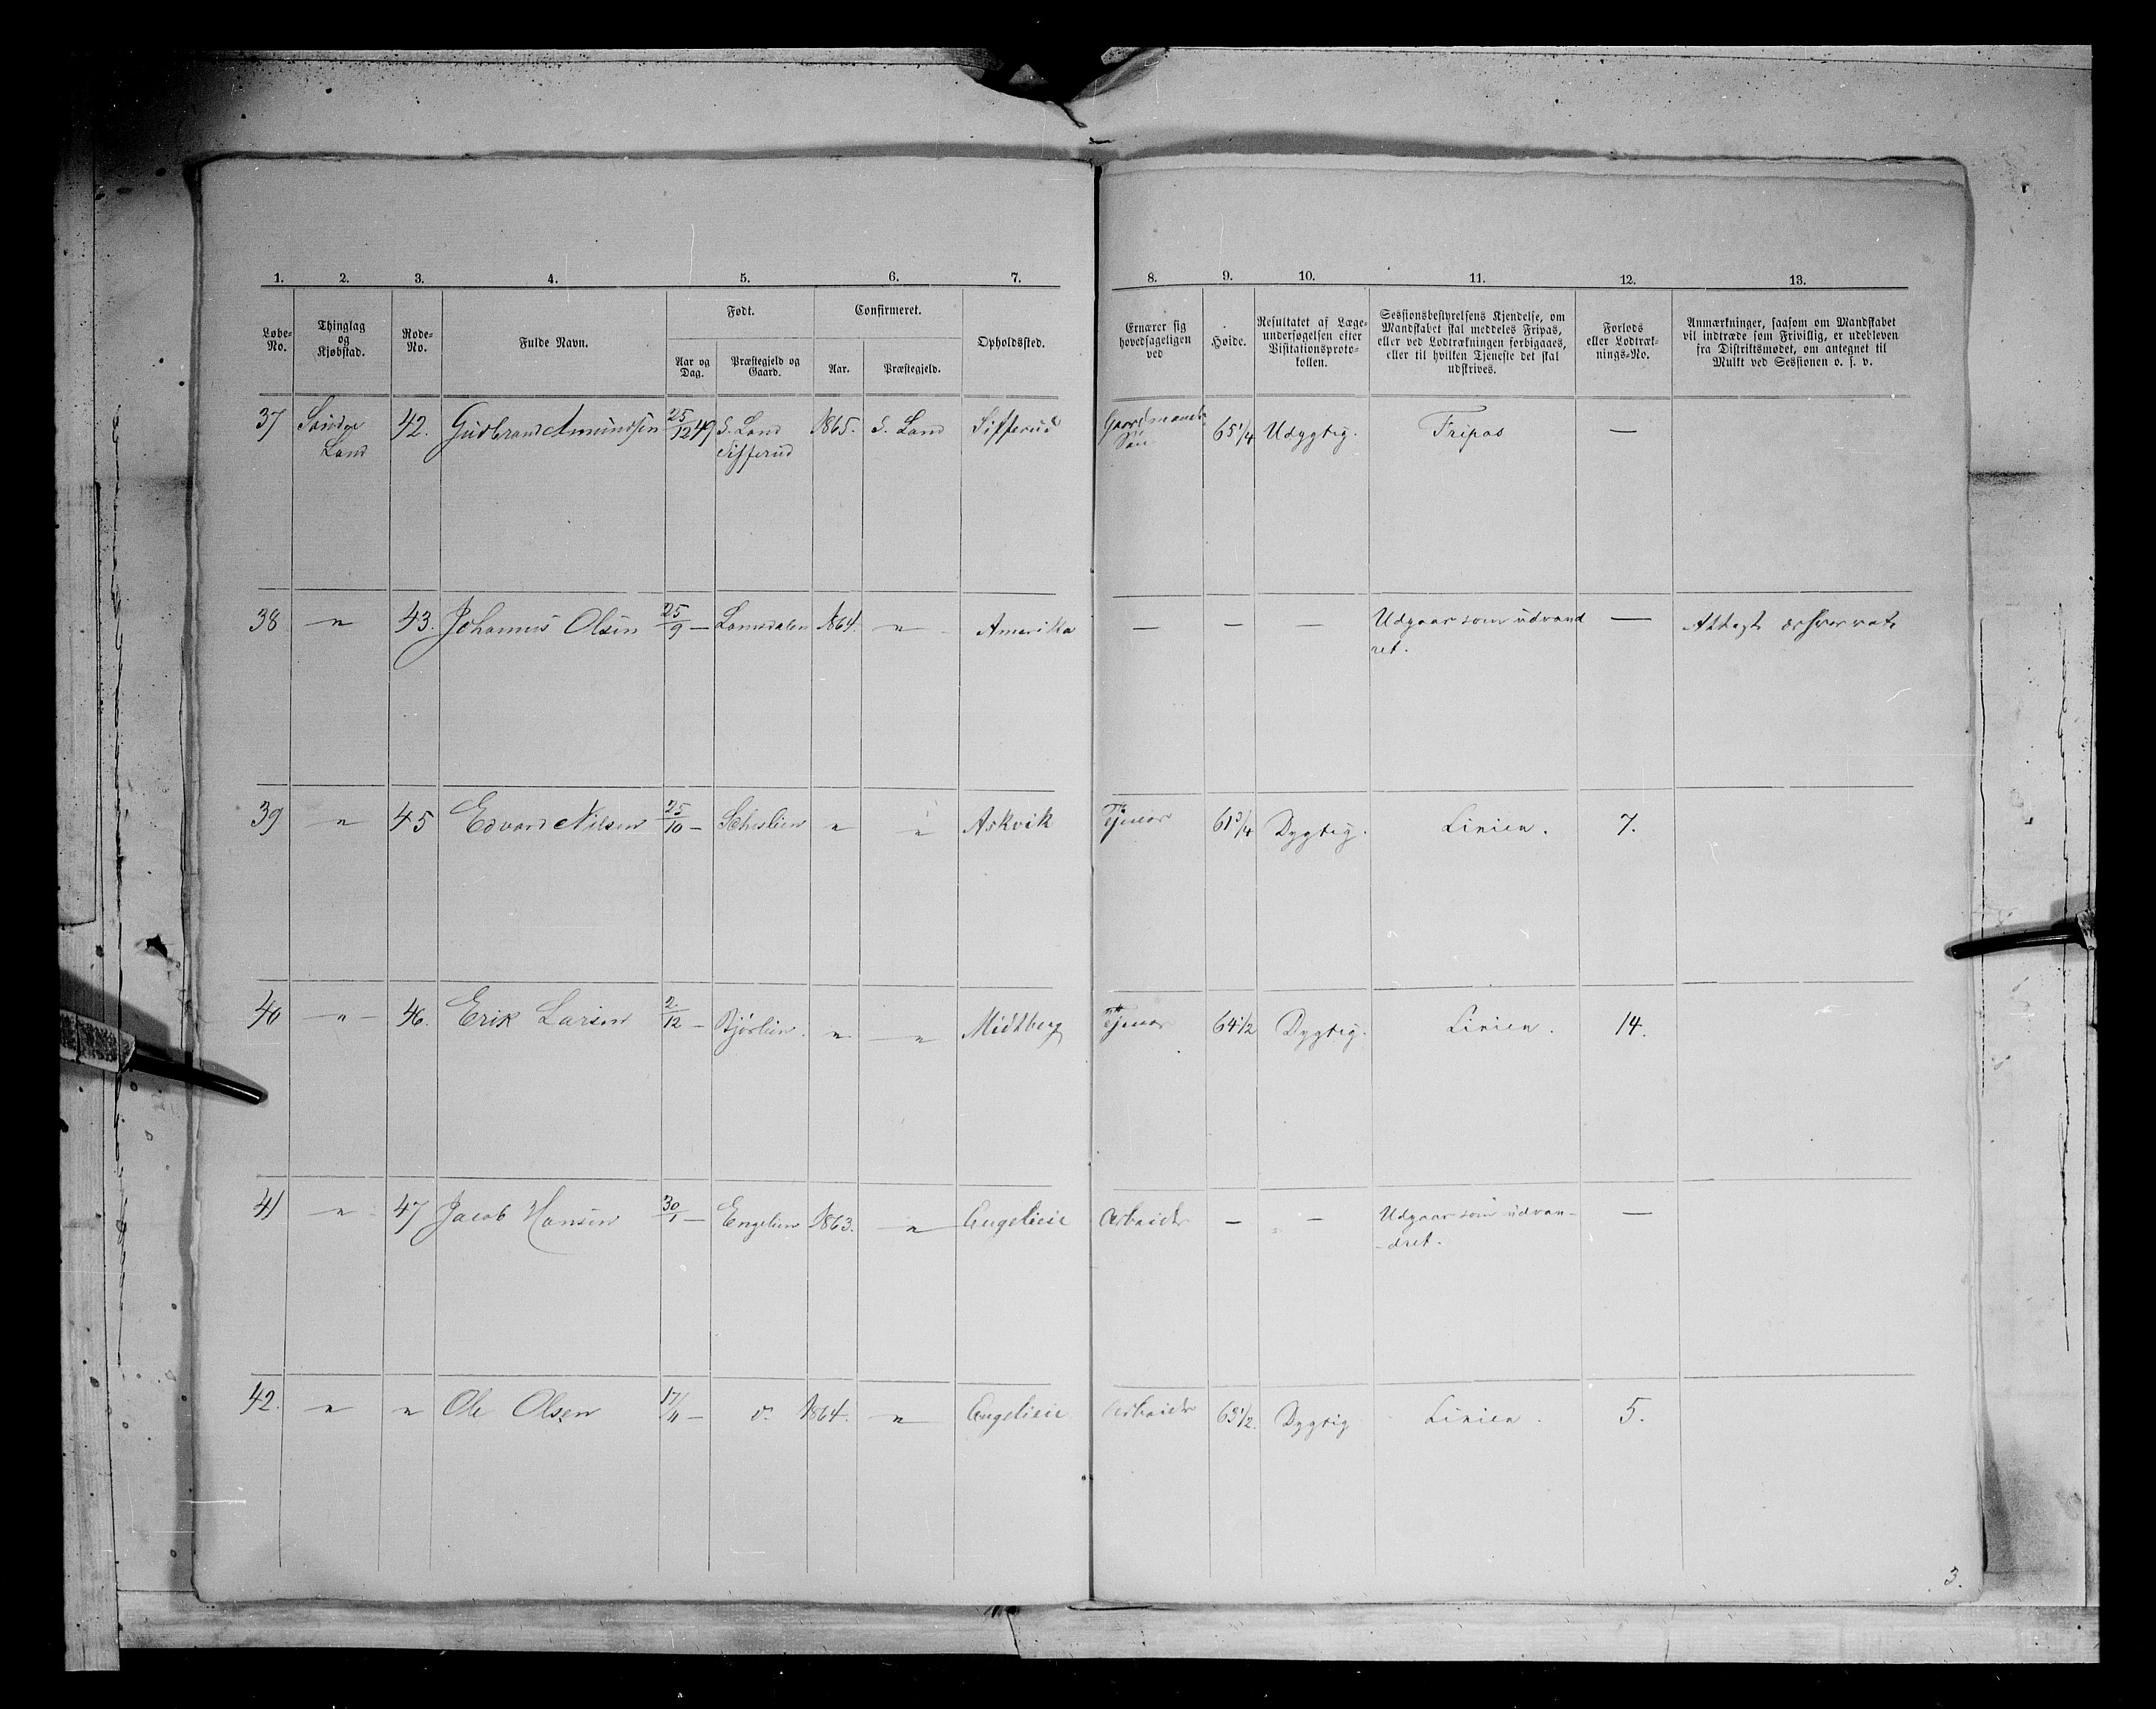 1. 2. 3. 4. 5. 6. 7. 8. 9. 10. 11. 12. 13.
Løbe-No.
Thinglag og Kjøbstad.
Rode-No.
Fulde Navn.
Født.
Aar og Dag.
Præstegjeld og Gaard.
Confirmeret.
Aar.
Præstegjeld.
Opholdssted.
Ernærer sig hovedsageligen ved
Høide.
Resultatet af Læge-undersøgelsen efter Visitationsproto-kollen.
Sessionsbestyrelsens Kjendelse, om Mandskabet skal meddeles Fripas, eller ved Lodtrækningen forbigaaes, eller til hvilken Tjeneste det skal udskrives.
Forlods eller Lodtræk-nings-No.
Anmærkninger, saasom om Mandskabet vil indtræde som Frivillig, er udebleven fra Distriktsmødet, om antegnet til Mulkt ved Sessionen o. s. v.
37 Søndre Land 42. Gudbrand Amundsen 25/12 49 S. Land Sifferud 1865. S. Land Sifferud Gaardmands Søn 65 1/4 Udygtig. Fripas —
38 " 43. Johannes Olsen 25/9 — Lomsdalen 1864. " Amerika — — — Udgaar som udvand ret. — Attest
39 " 45 Edvard Nilsen 25/10 — " " Askvik Tjener 61 3/4 Dygtig. Linien. 7.
40 " 46. Erik Larsen 2/12 — Bjørlien. " " Midtberg Tjener 64 1/2 Dygtig. Linien. 14.
41 " 47 Jacob Hansen 30/1 — Engelien 1863. " Engelieie Arbeider — — Udgaar som udvan- -dret. —
42. " " Ole Olsen 17/11 — 1864. " Engelieie Arbeider 63 1/2. Dygtig Linien. 5.
3.